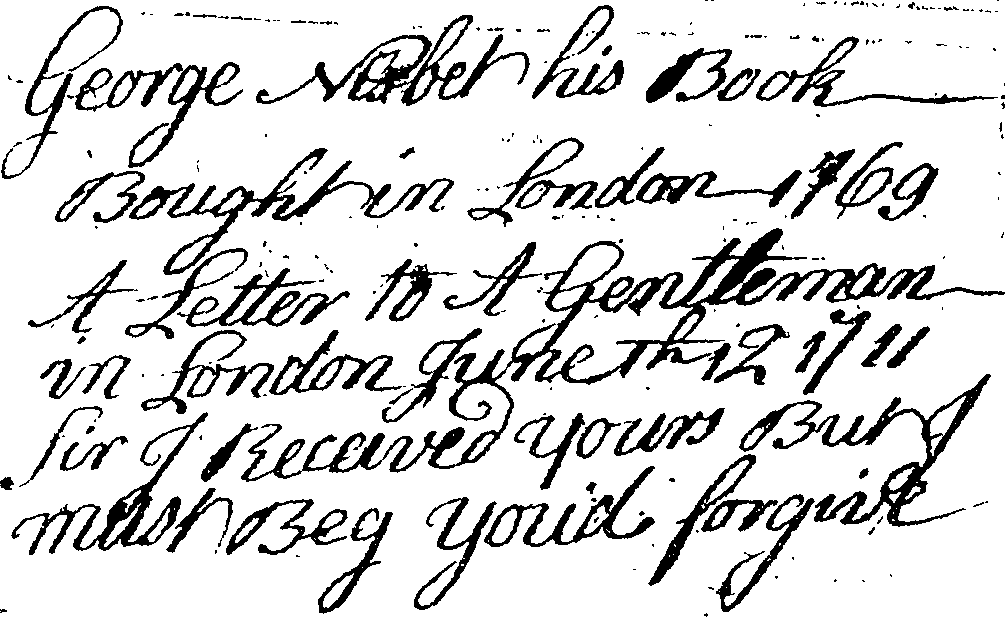 George Nisbet his Book
Bought in London 1769
A Letter to A Gentleman
in London June th 12 1711
Sir I Received yours But I
must Beg you'd forgive